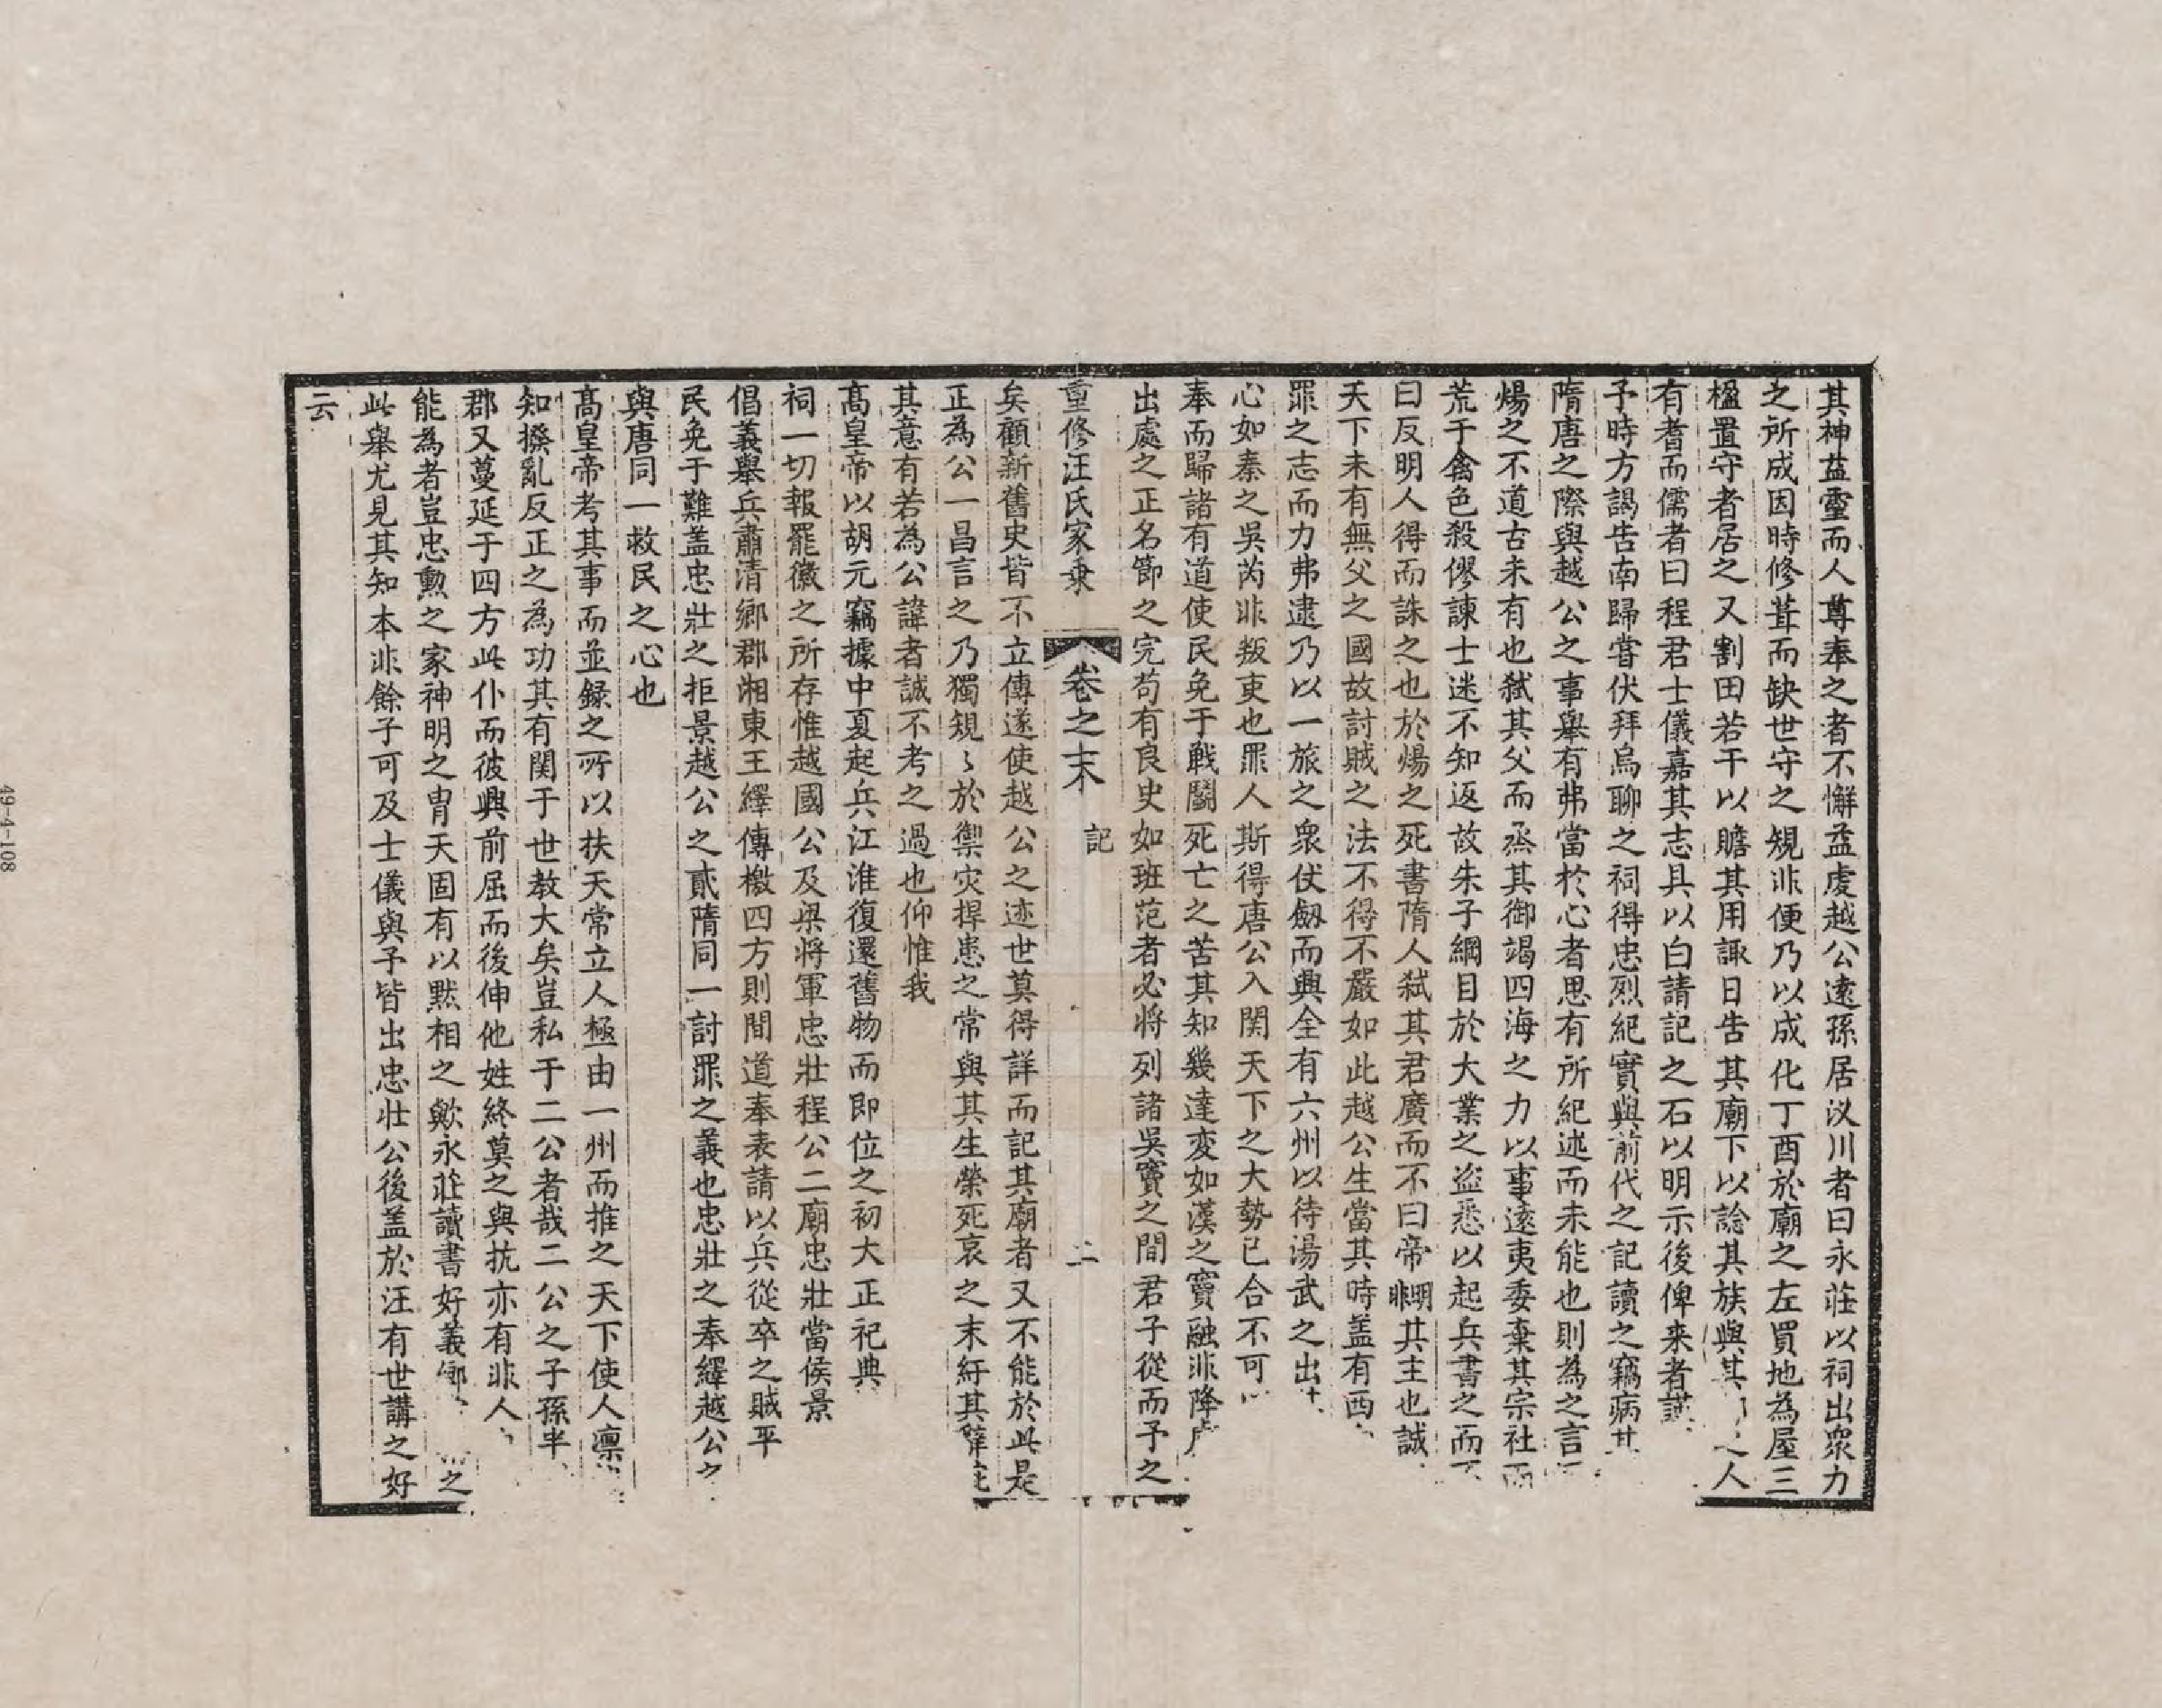 其神益靈而人尊奉之者不懈益虔越公遠孫居汊川者曰永莊以祠出衆力
之所成因時修葺而缺世守之規非便乃以成化丁酉於廟之左買地為屋三
楹置守者居之又割田若干以贍其用諏日告其廟下以諗其族與其人
有耆而儒者曰程君士儀嘉其志具以白請記之石以明示後俾来者
予時方謁告南歸嘗伏拜烏聊之祠得忠烈紀實與前代之記讀之竊病
隋唐之際與越公之事舉有弗當於心者思有所紀述而未能也則為之言
煬之不道古未有也弑其父而烝其御竭四海之力以事遠夷委棄其宗社
荒于禽色殺僇諫士迷不知返故朱子綱目於大業之盗悉以起兵書之而
曰反明人得而誅之也於煬之死書隋人弑其君廣而不曰帝明非其主也誠
天下未有無父之國故討賊之法不得不嚴如此越公生當其時盖有西
罪之志而力弗逮乃以一旅之衆伏劒而興全有六州以待湯武之出
心如秦之吳芮非叛吏也罪人斯得唐公入関天下之大勢已合不可
奉而歸諸有道使民免于戦鬬死亡之苦其知幾達変如漢之竇融非降
出處之正名節之完苟有良史如班范者必将列諸吳竇之間君子從而予之
重修汪氏家乗
卷之末
記
二
矣顧新舊史皆不立傳遂使越公之迹世莫得詳而記其廟者又不能於此是
正為公一昌言之乃獨規〻於禦灾捍患之常與其生榮死哀之末紆其
其意有若為公諱者誠不考之過也仰惟我
髙皇帝以胡元竊據中夏起兵江淮復還舊物而即位之初大正祀典
祠一切報罷徽之所存惟越國公及梁将軍忠壯程公二廟忠壯當侯景
倡義舉兵肅清鄉郡湘東王繹傳檄四方則間道奉表請以兵從卒之賊平
民免于難盖忠壯之拒景越公之貳隋同一討罪之義也忠壯之奉繹越公之
與唐同一救民之心也
髙皇帝考其事而並録之所以扶天常立人極由一州而推之天下使人凛
知撥亂反正之為功其有関于世教大矣豈私于二公者哉二公之子孫半
郡又蔓延于四方此仆而彼興前屈而後伸他姓終莫之與抗亦有非人
能為者豈忠勳之家神明之胄天固有以黙相之歟永莊讀書好義之
此舉尤見其知本非餘子可及士儀與予皆出忠壮公後盖於汪有世講之好
云
49-4-108